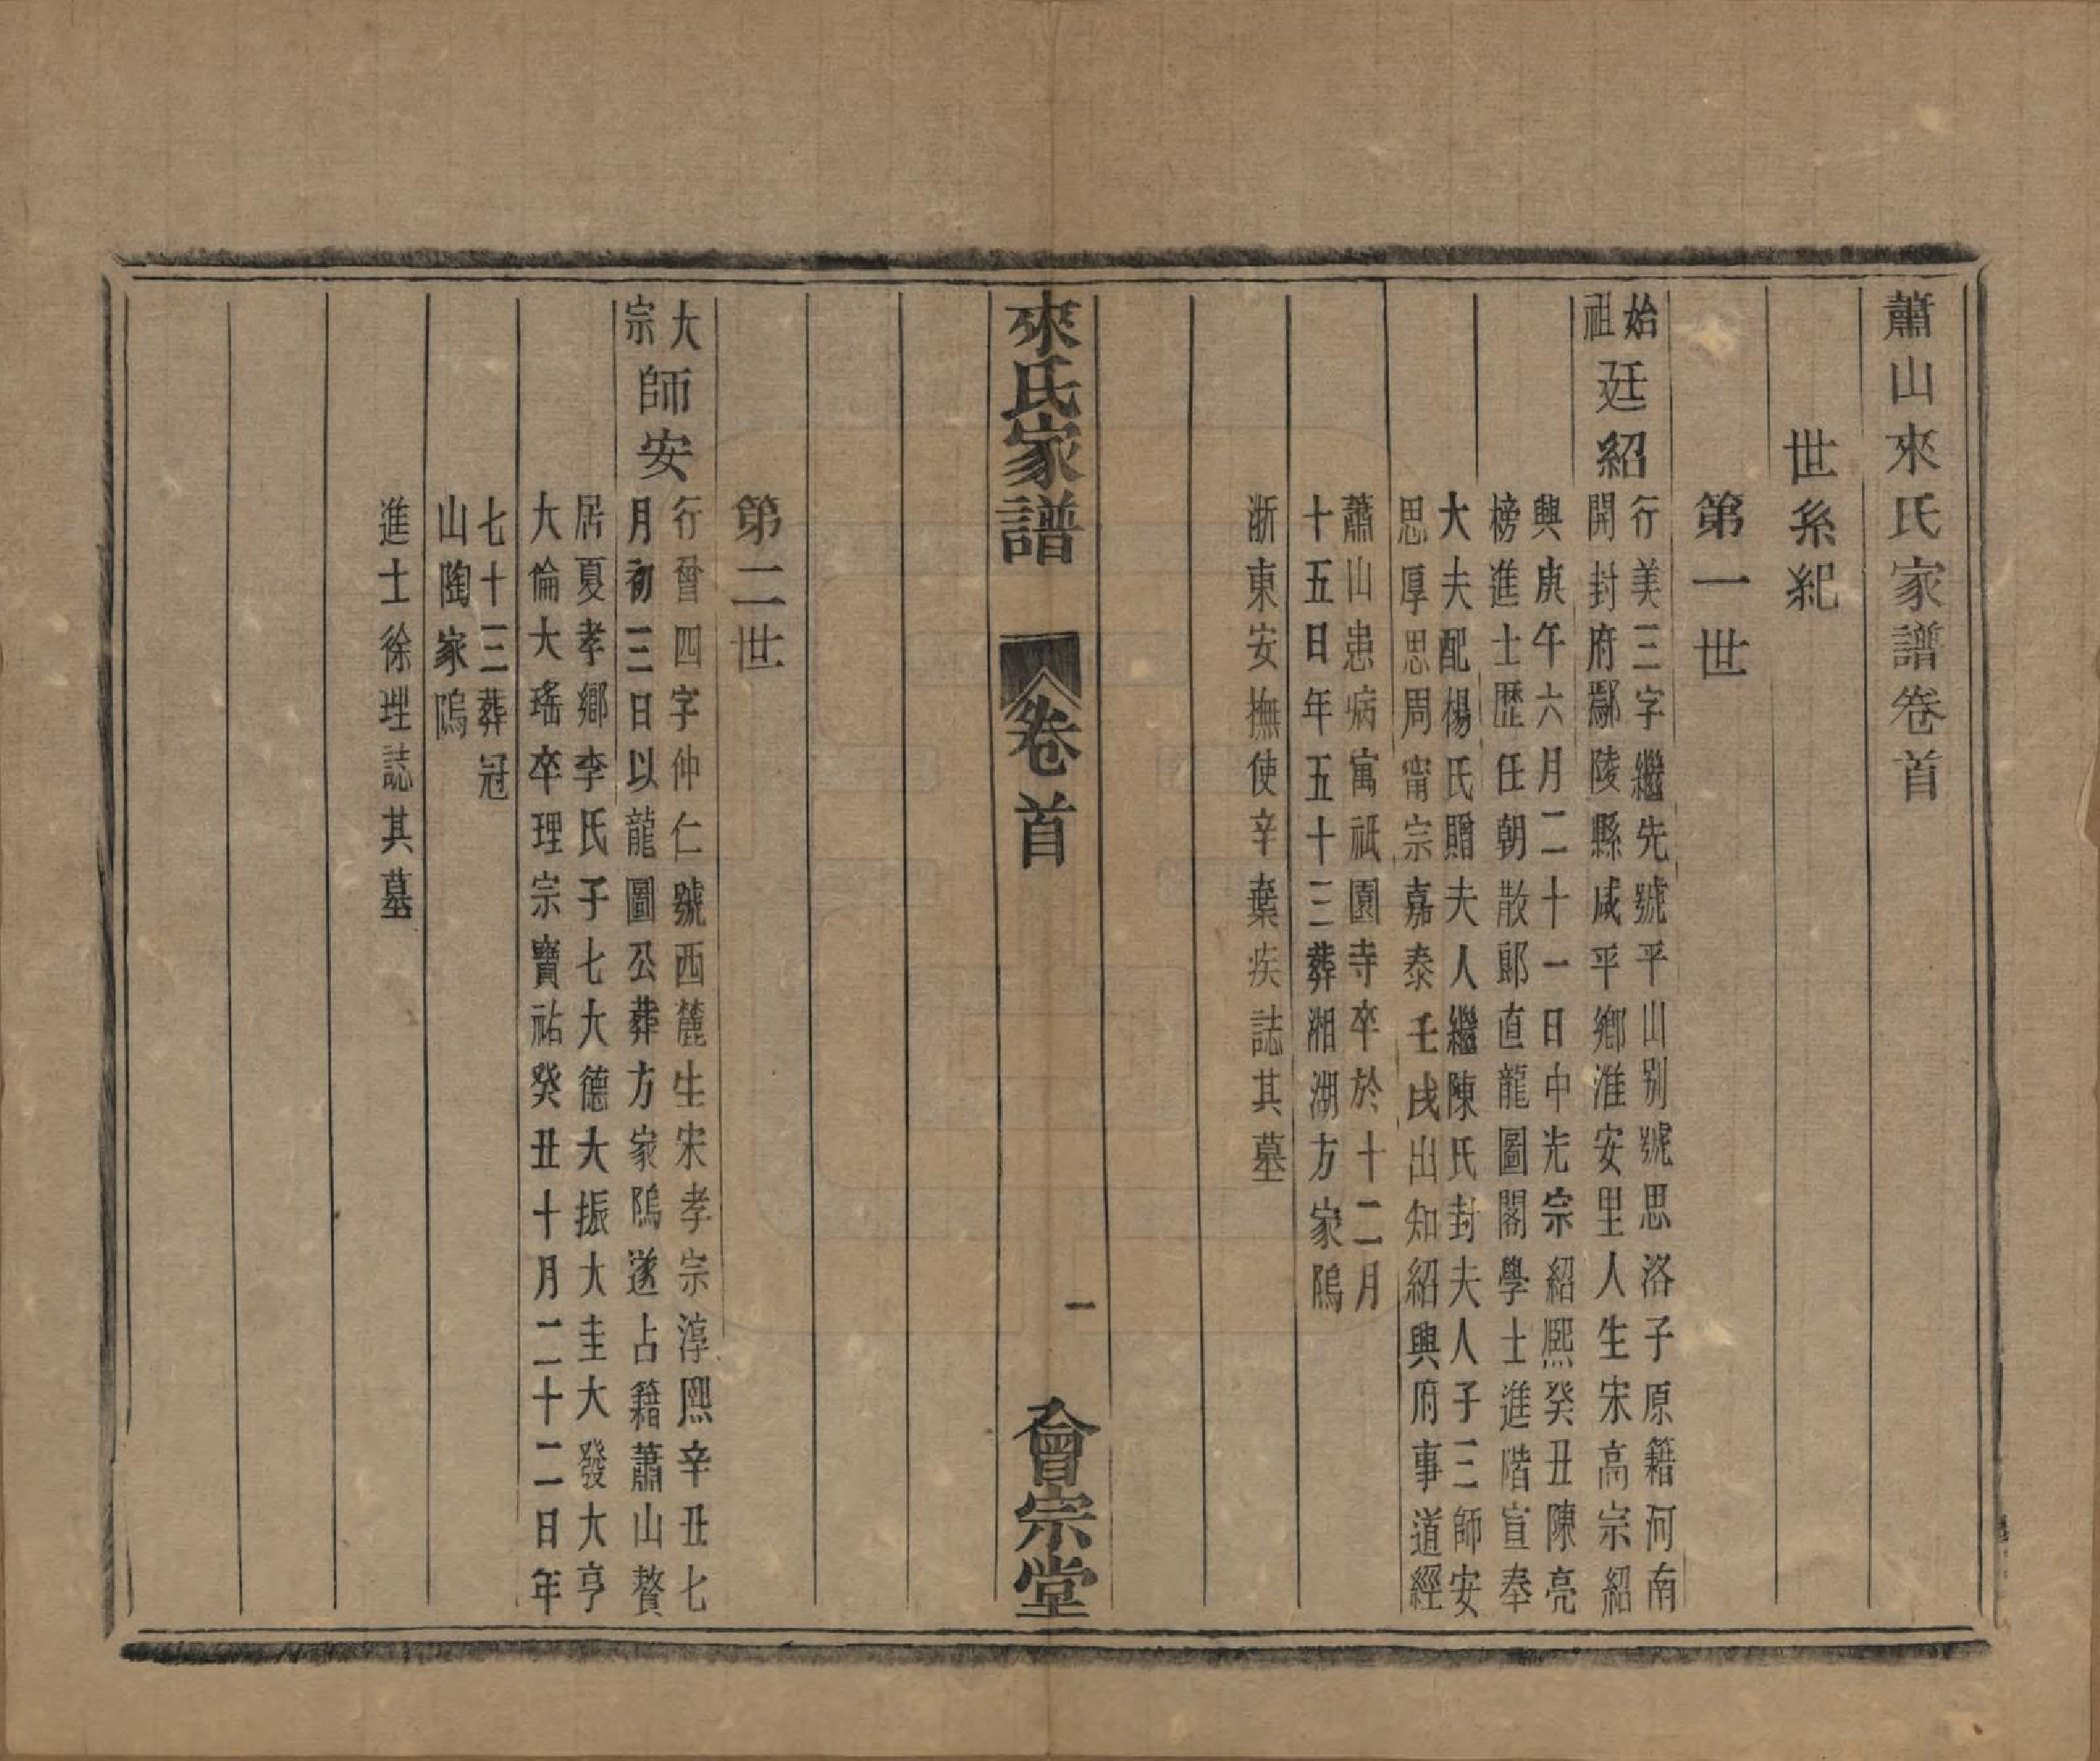 蕭山來氏家譜卷首
世系紀
第一世
始祖廷紹
行美三字繼先號平山别號思洛子原籍河南
開封府鄢陵縣咸平鄉淮安里人生宋高宗紹
興庚午六月二十一日中光宗紹熙癸丑陳亮
榜進士歷任朝散郎直龍圖閣學士進階宣奉
大夫配楊氏贈夫人繼陳氏封夫人子三師安
思厚思周甯宗嘉泰壬戌出知紹興府事道經
蕭山患病寓祇園寺卒於十二月
十五日年五十三葬湘湖方家隖
浙東安撫使辛棄疾誌其墓
來氏家譜 卷首 一 會宗堂
第二世
大宗師安
行晉四字仲仁號西麓生宋孝宗淳熙辛丑七
月初三日以龍圖公葬方家隖遂占籍蕭山贅
居夏孝鄉李氏子七大德大振大圭大發大亨
大倫大瑤卒理宗寶祐癸丑十月二十二日年
七十三葬冠
山陶家隖
進士徐理誌其墓